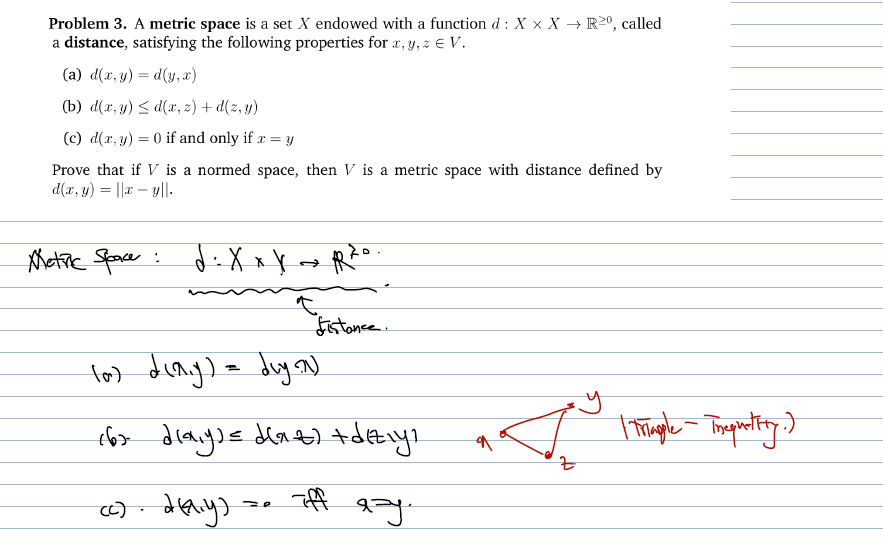 Problem 3. A metric space is a set X endowed with a function d : X × X → ℝ≥0, called
a distance, satisfying the following properties for x, y, z ∈ V.
(a) d(x, y) = d(y, x)
(b) d(x, y) ≤ d(x, z) + d(z, y)
(c) d(x, y) = 0 if and only if x = y
Prove that if V is a normed space, then V is a metric space with distance defined by
d(x, y) = ||x − y||.
Metric Space : d : X × X → ℝ≥0.
distance.
(a) d(x,y) = d(y,x)
(b) d(x,y) ≤ d(x,z) + d(z,y)
x y z (Triangle - Inequality.)
(c). d(x,y) = 0 iff x=y.